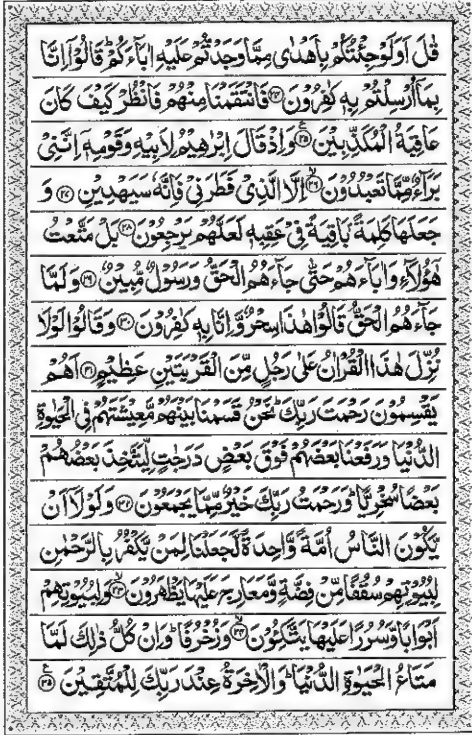 قٰلَ اَوَلَوْ جِئْتُكُمْ بِاَهْدٰى مِمَّا وَجَدْتُّمْ عَلَيْهِ اٰبَآءَكُمْ ؕ قَالُوْۤا اِنَّا
بِمَاۤ اُرْسِلْتُمْ بِهٖ كٰفِرُوْنَ ﴿۲۴﴾ فَانْتَقَمْنَا مِنْهُمْ فَانْظُرْ كَيْفَ كَانَ
عَاقِبَةُ الْمُكَذِّبِيْنَ ﴿۲۵﴾ ع وَاِذْ قَالَ اِبْرٰهِيْمُ لِاَبِيْهِ وَقَوْمِهٖۤ اِنَّنِيْ
بَرَآءٌ مِّمَّا تَعْبُدُوْنَ ﴿۲۶﴾ ۙ اِلَّا الَّذِيْ فَطَرَنِيْ فَاِنَّهٗ سَيَهْدِيْنِ ﴿۲۷﴾ وَ
جَعَلَهَا كَلِمَةًۢ بَاقِيَةً فِيْ عَقِبِهٖ لَعَلَّهُمْ يَرْجِعُوْنَ ﴿۲۸﴾ بَلْ مَتَّعْتُ
هٰۤؤُلَآءِ وَاٰبَآءَهُمْ حَتّٰى جَآءَهُمُ الْحَقُّ وَرَسُوْلٌ مُّبِيْنٌ ﴿۲۹﴾ وَلَمَّا
جَآءَهُمُ الْحَقُّ قَالُوْا هٰذَا سِحْرٌ وَّاِنَّا بِهٖ كٰفِرُوْنَ ﴿۳۰﴾ وَقَالُوْا لَوْلَا
نُزِّلَ هٰذَا الْقُرْاٰنُ عَلٰى رَجُلٍ مِّنَ الْقَرْيَتَيْنِ عَظِيْمٍ ﴿۳۱﴾ اَهُمْ
يَقْسِمُوْنَ رَحْمَتَ رَبِّكَ ؕ نَحْنُ قَسَمْنَا بَيْنَهُمْ مَّعِيْشَتَهُمْ فِي الْحَيٰوةِ
الدُّنْيَا وَرَفَعْنَا بَعْضَهُمْ فَوْقَ بَعْضٍ دَرَجٰتٍ لِّيَتَّخِذَ بَعْضُهُمْ
بَعْضًا سُخْرِيًّا ؕ وَرَحْمَتُ رَبِّكَ خَيْرٌ مِّمَّا يَجْمَعُوْنَ ﴿۳۲﴾ وَلَوْلَاۤ اَنْ
يَّكُوْنَ النَّاسُ اُمَّةً وَّاحِدَةً لَّجَعَلْنَا لِمَنْ يَّكْفُرُ بِالرَّحْمٰنِ
لِبُيُوْتِهِمْ سُقُفًا مِّنْ فِضَّةٍ وَّمَعَارِجَ عَلَيْهَا يَظْهَرُوْنَ ﴿۳۳﴾ ۙ وَلِبُيُوْتِهِمْ
اَبْوَابًا وَّسُرُرًا عَلَيْهَا يَتَّكِـُٔوْنَ ﴿۳۴﴾ ۙ وَزُخْرُفًا ؕ وَاِنْ كُلُّ ذٰلِكَ لَمَّا
مَتَاعُ الْحَيٰوةِ الدُّنْيَا ؕ وَالْاٰخِرَةُ عِنْدَ رَبِّكَ لِلْمُتَّقِيْنَ ﴿۳۵﴾ ع